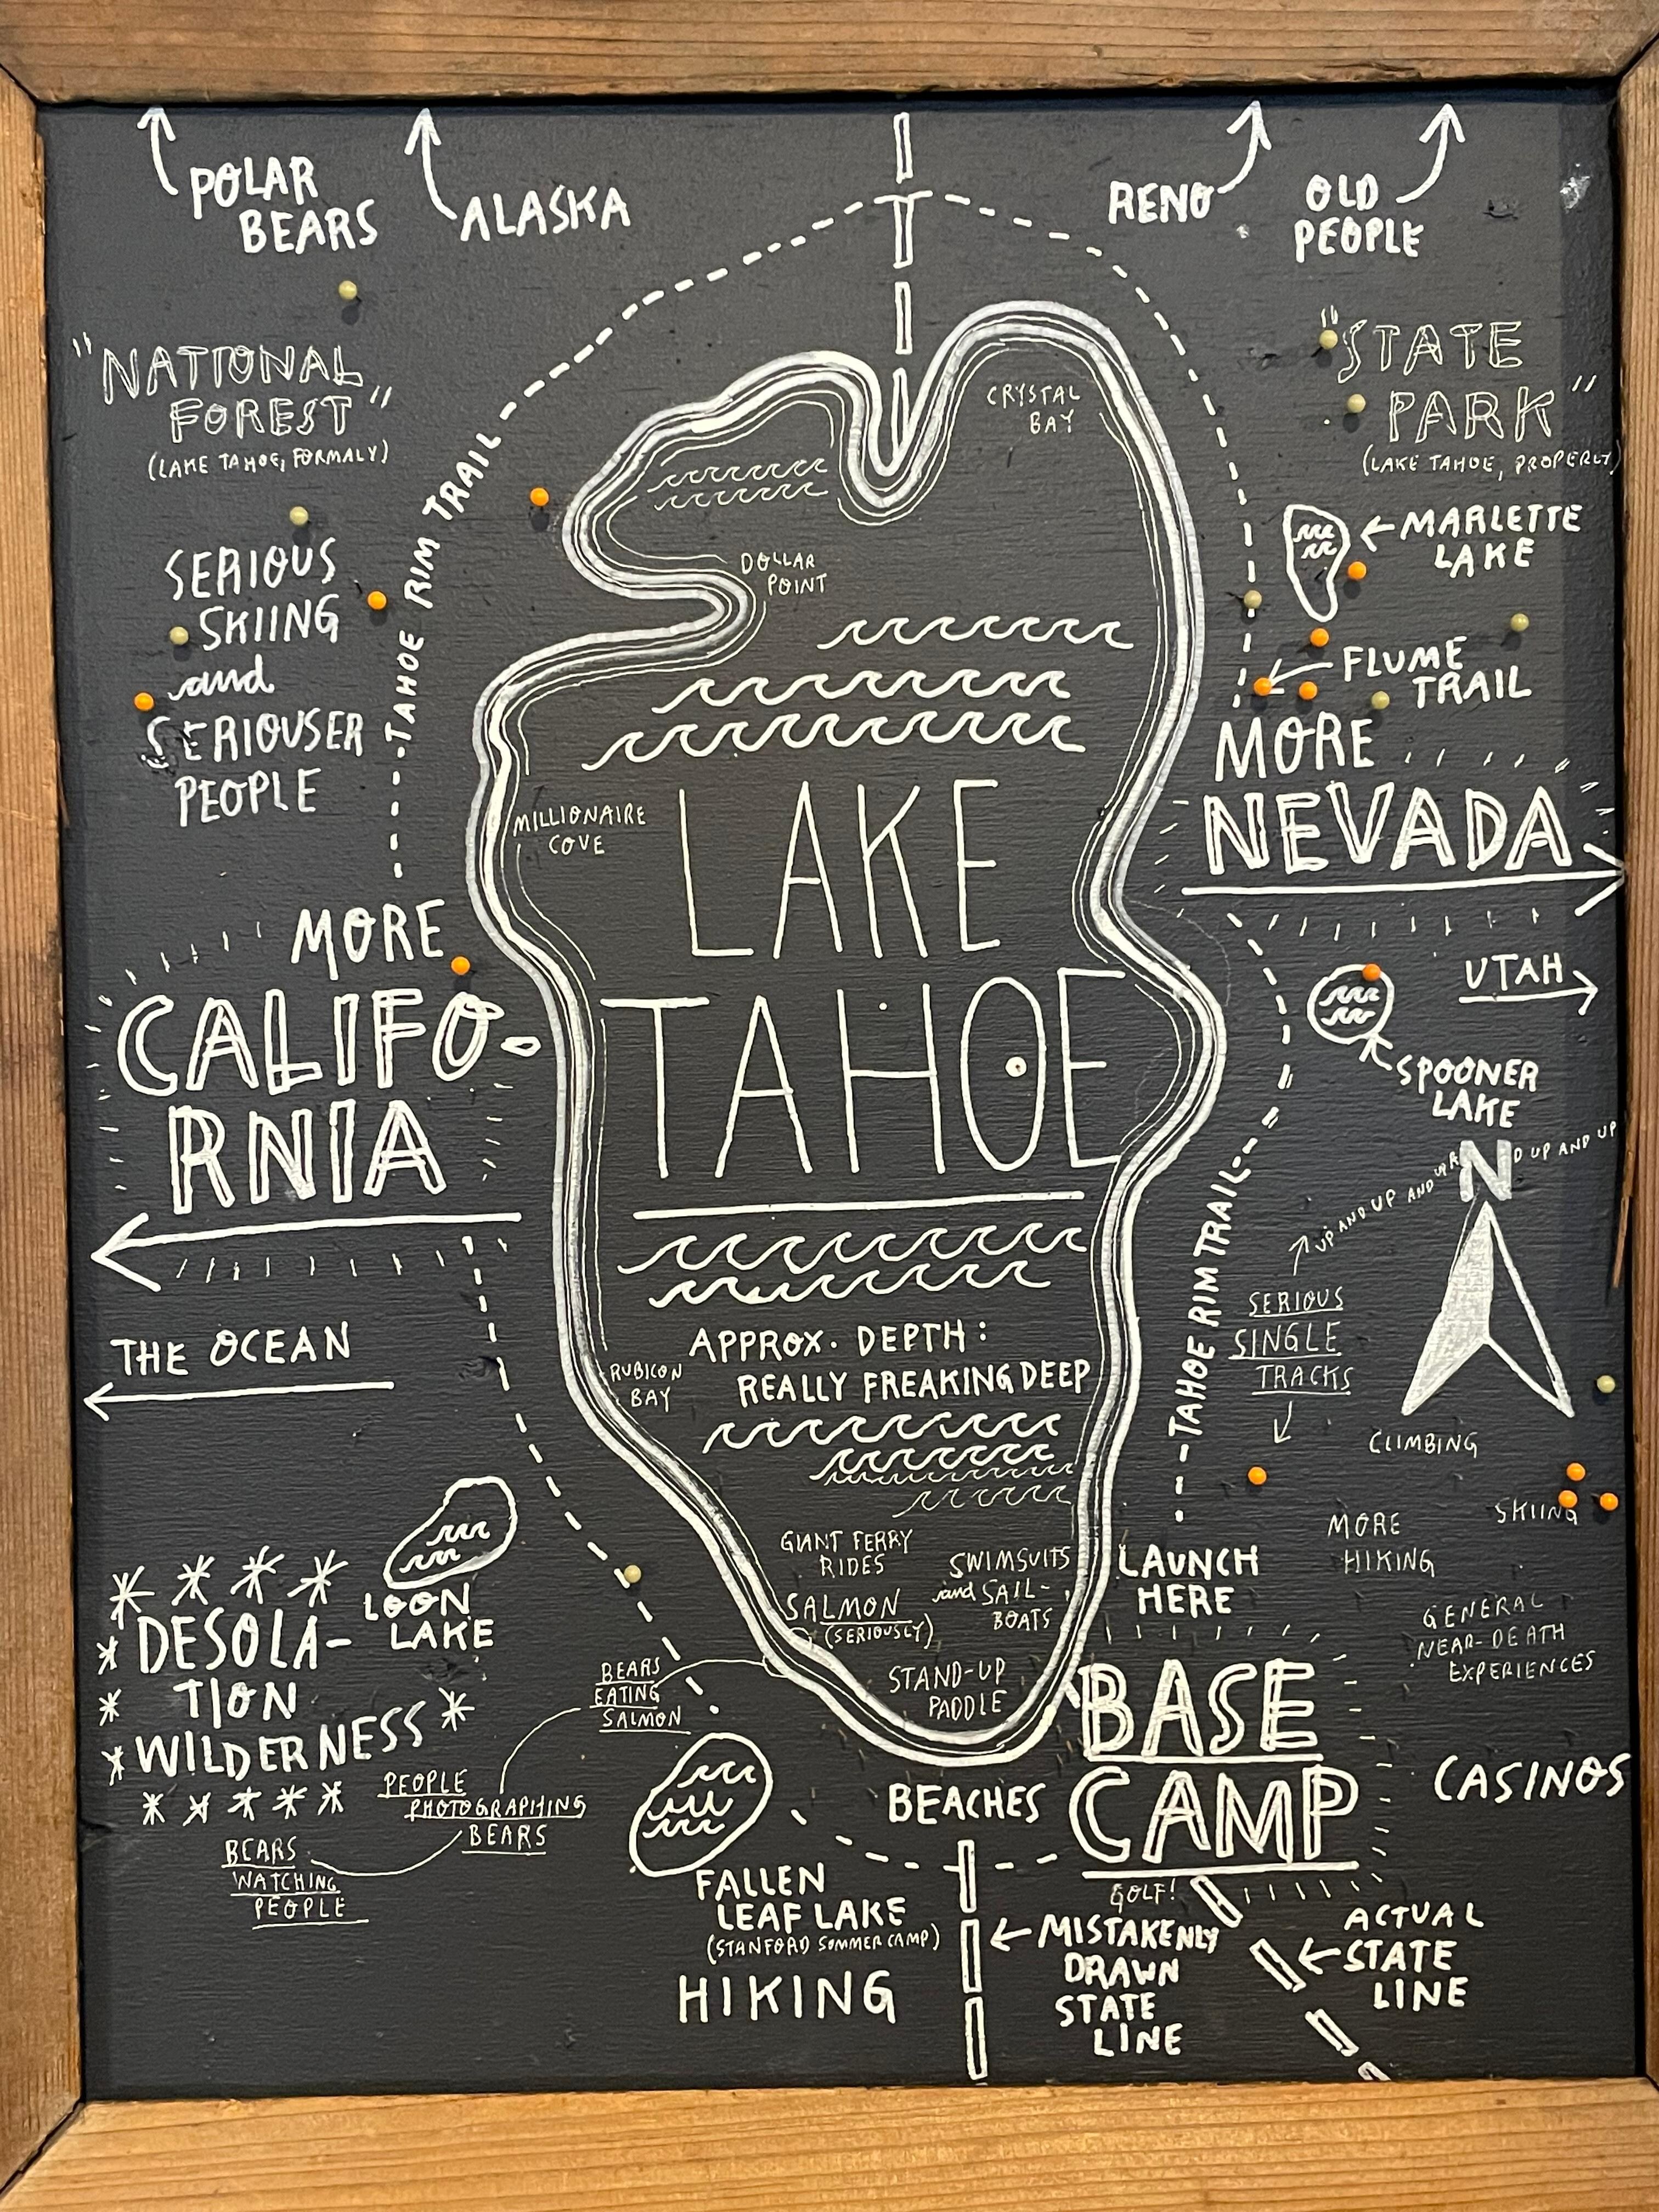 POLAR
BEARS
ALASKA
RENO
OLD
PEOPLE
"NATIONAL
FOREST"
(LAKE TAHOE, FORMALY)
"STATE
PARK"
(LAKE TAHOE, PROPERLY)
CRYSTAL
BAY
TAHOE RIM TRAIL
MARLETTE
LAKE
SERIOUS
SKIING
and
SERIOUSER
PEOPLE
DOLLAR
POINT
FLUME
TRAIL
MORE
NEVADA
MILLIONAIRE
COVE
LAKE
TAHOE
MORE
CALIFO-
RNIA
UTAH
SPOONER
LAKE
N
UP AND UP AND UP AND UP AND UP
THE OCEAN
TAHOE RIM TRAIL
SERIOUS
SINGLE
TRACKS
APPROX. DEPTH:
REALLY FREAKING DEEP
RUBICON
BAY
CLIMBING
SKIING
MORE
HIKING
GIANT FERRY
RIDES
SWIMSUITS
and SAIL-
BOATS
SALMON
(SERIOUSLY)
STAND-UP
PADDLE
LAUNCH
HERE
GENERAL
NEAR-DEATH
EXPERIENCES
LOON
LAKE
DESOLA-
TION
WILDERNESS
BEARS
EATING
SALMON
PEOPLE
PHOTOGRAPHING
BEARS
BEARS
WATCHING
PEOPLE
BASE
CAMP
BEACHES
CASINOS
GOLF!
FALLEN
LEAF LAKE
(STANFORD SUMMER CAMP)
HIKING
MISTAKENLY
DRAWN
STATE
LINE
ACTUAL
STATE
LINE